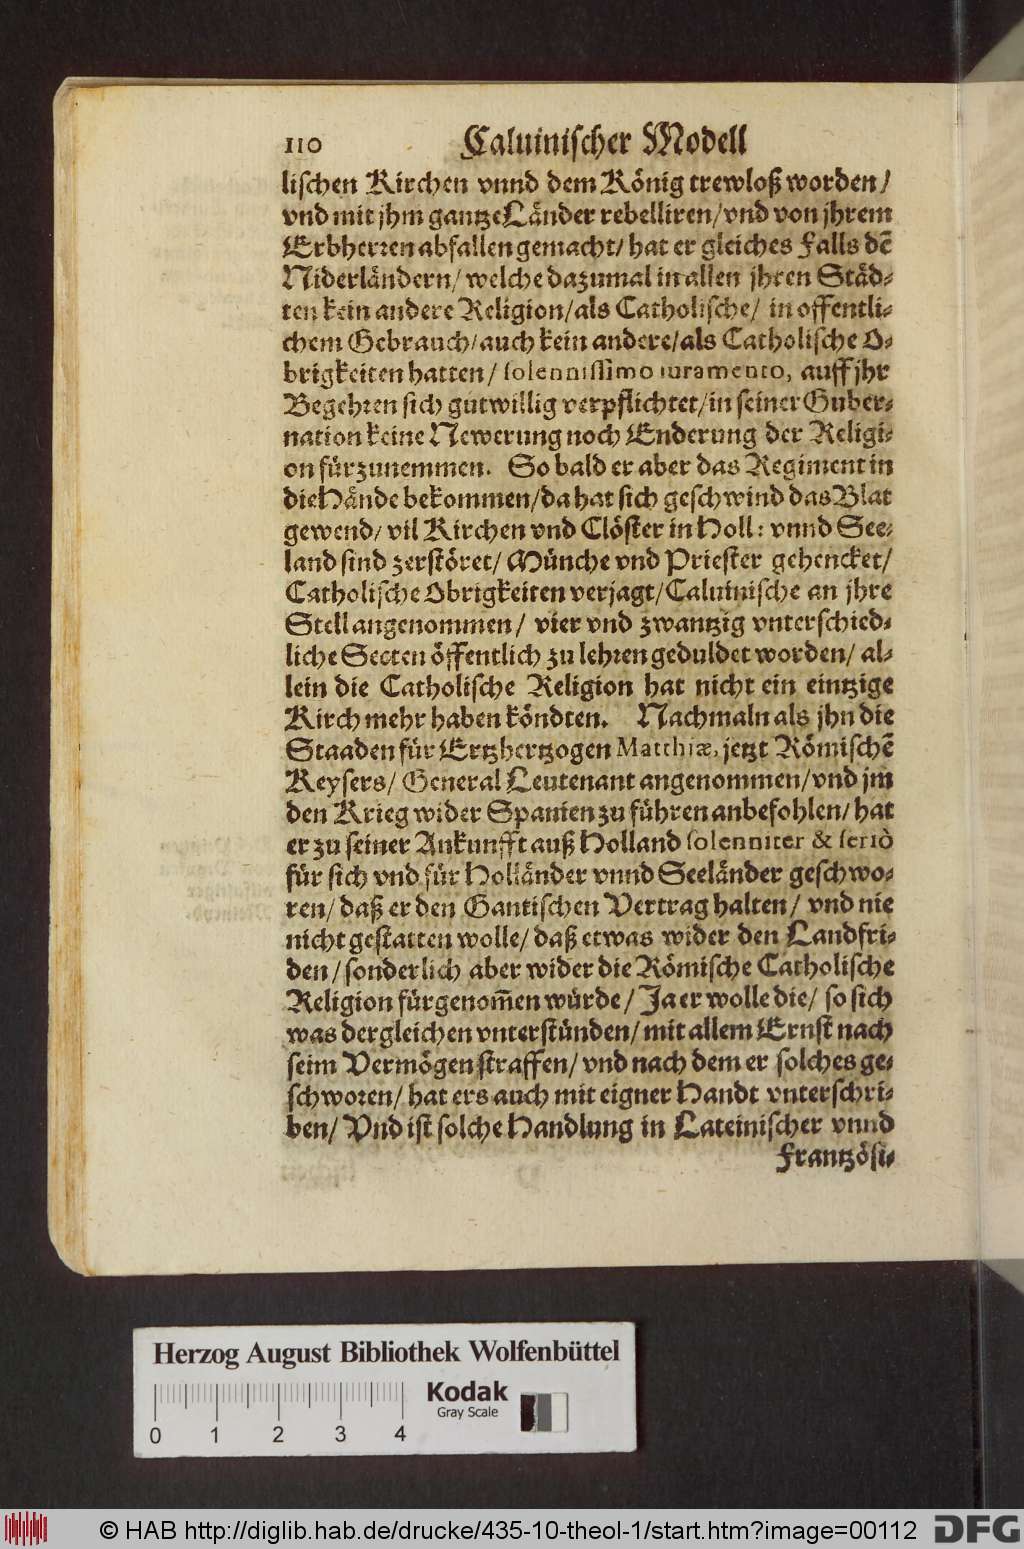 110 Caluinischer Modell
lischen Kirchen vnnd dem König trewloß worden/
vnd mit jhm gantze Länder rebelliren/vnd von jhrem
Erbherren abfallen gemacht/ hat er gleiches Falls dē
Niderländern/ welche dazumal in allen jhren Städ-
ten kein andere Religion/als Catholische/ in offentli-
chem Gebrauch/auch kein andere/als Catholische O-
brigkeiten hatten/ solennissimo iuramento, auff jhr
Begehren sich gutwillig verpflichtet/in seiner Guber-
nation keine Newerung noch Enderung der Religi-
on fürzunemmen. So bald er aber das Regiment in
die Hände bekommen/da hat sich geschwind das Blat
gewend/ vil Kirchen vnd Clöster in Holl: vnnd See-
land sind zerstöret/ Münche vnd Priester gehencket/
Catholische Obrigkeiten verjagt/Caluinische an jhre
Stell angenommen/ vier vnd zwantzig vnterschied-
liche Secten öffentlich zu lehren geduldet worden/ al-
lein die Catholische Religion hat nicht ein eintzige
Kirch mehr haben köndten. Nachmaln als jhn die
Staaden für Ertzhertzogen Matthiæ, jetzt Römischē
Keysers/ General Leutenant angenommen/vnd jm
den Krieg wider Spanien zu führen anbefohlen/ hat
er zu seiner Ankunfft auß Holland solenniter & seriò
für sich vnd für Holländer vnnd Seeländer geschwo-
ren/ daß er den Gantischen Vertrag halten/ vnd nie
nicht gestatten wolle/ daß etwas wider den Landfri-
den/sonderlich aber wider die Römische Catholische
Religion fürgenom̄en würde/ Ja er wolle die/ so sich
was dergleichen vnterstünden/mit allem Ernst nach
seim Vermögen straffen/ vnd nach dem er solches ge-
schworen/ hat ers auch mit eigner Handt vnterschri-
ben/ Vnd ist solche Handlung in Lateinischer vnnd
Frantzösi-
Herzog August Bibliothek Wolfenbüttel
Kodak
Gray Scale
0 1 2 3 4
© HAB http://diglib.hab.de/drucke/435-10-theol-1/start.htm?image=00112 DFG